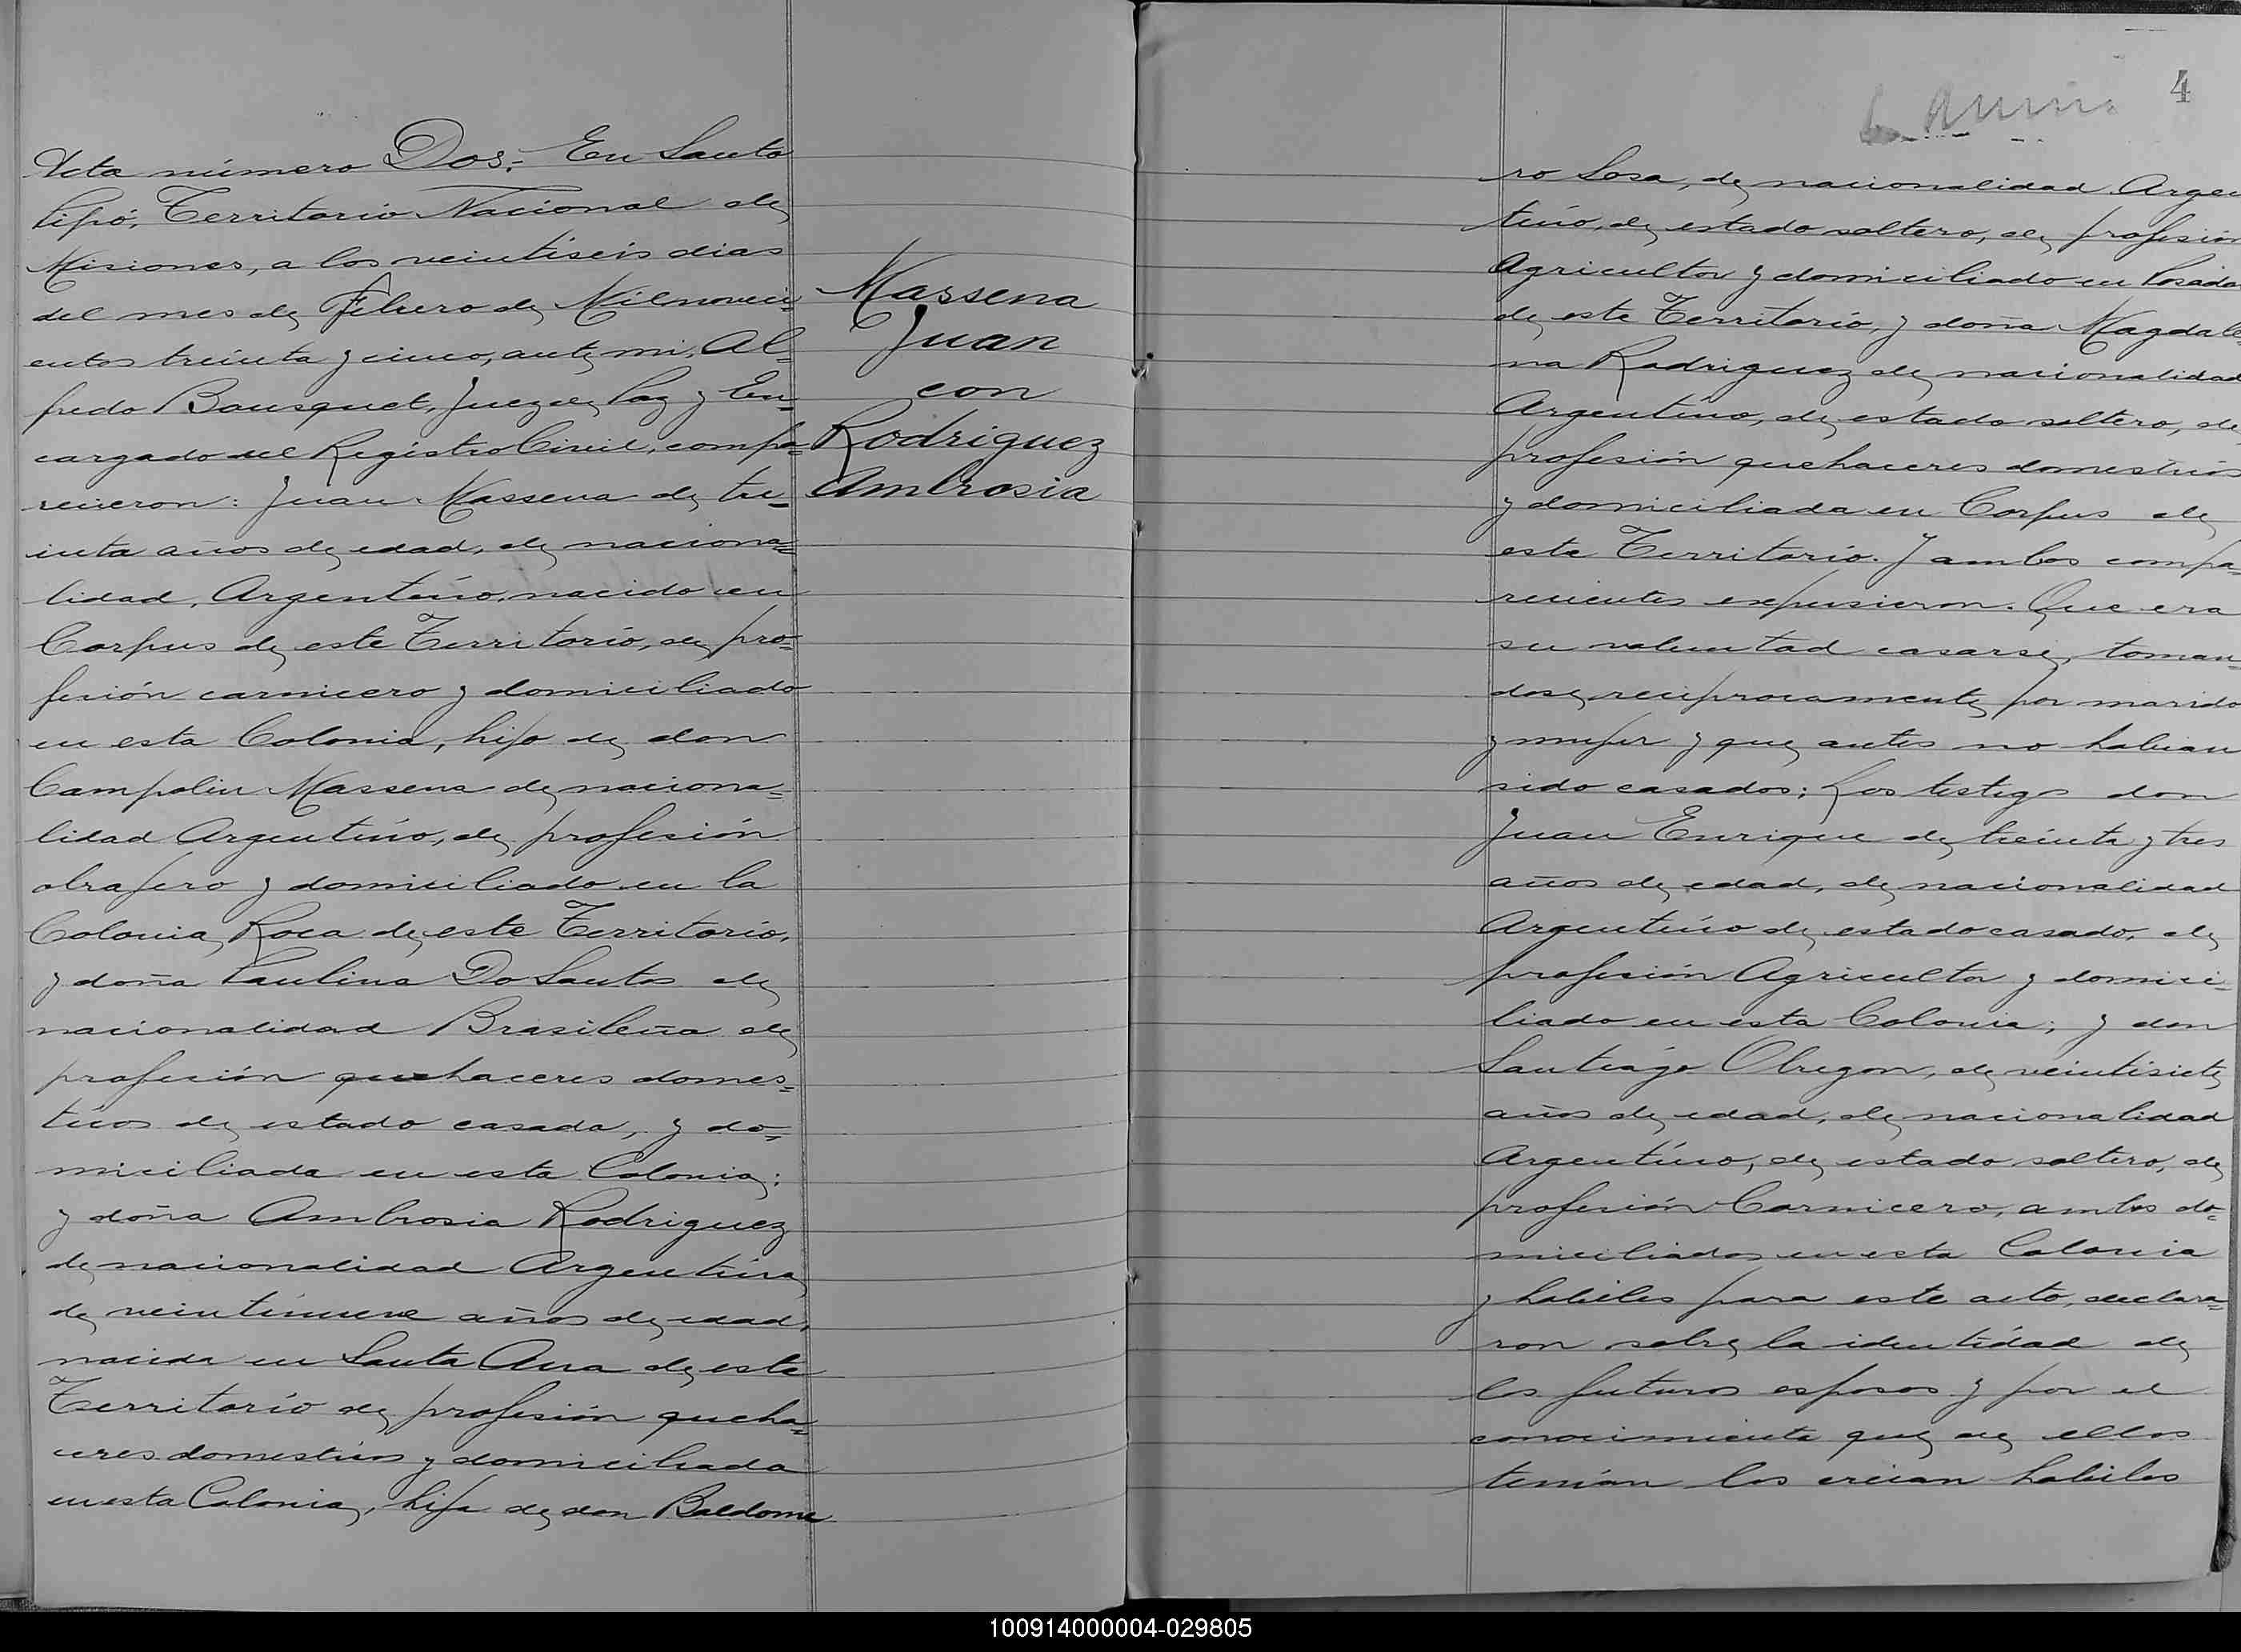 Acta número Dos:- En Santo
Pipó, Territorio Nacional de
Misiones, a los veintiseis dias
del mes de Febrero de Milnoveci-
entos treinta y cinco, ante mi, Al=
fredo Bousquet, Juez de Paz y En=
cargado del Registro Civil, compa=
recieron: Juan Massena de tre-
inta años de edad, de naciona=
lidad, Argentino, nacido en
Corpus de este Territorio, de pro=
fesión carnicero y domiciliado
en esta Colonia, hijo de don
Campolin Massena de naciona=
lidad Argentino, de profesión
obrajero y domiciliado en la
Colonia Roca de este Territorio,
y doña Paulina Do Santos de
nacionalidad Brasileña de
profesión quehaceres domes=
ticos de estado casada, y do=
miciliada en esta Colonia;
y doña Ambrosia Rodriguez
de nacionalidad Argentina
de veintinueve años de edad,
nacida en Santa Ana de este
Territorio de profesión queha=
ceres domesticos y domiciliada
en esta Colonia, hija de don Baldome
Massena
Juan
con
Rodriguez
Ambrosia
4
ro Sosa, de nacionalidad Argen
tino, de estado soltero, de profesión
Agricultor y domiciliado en Posadas
de este Territorio, y doña Magdale
na Rodriguez de nacionalidad
Argentino, de estado soltero, de
profesión quehaceres domesticos
y domiciliada en Corpus de
este Territorio. Y ambos compa=
recientes expusieron. Que era
su voluntad casarse, toman=
dose reciprocamente por marido
y mujer y que antes no habian
sido casados; Los testigos don
Juan Enrique de treinta y tres
años de edad, de nacionalidad
Argentino de estado casado, de
profesión Agricultor y domici=
liado en esta Colonia; y don
Santiago Obregon, de veintisiete
años de edad, de nacionalidad
Argentino, de estado soltero, de
profesión Carnicero, ambos do=
miciliados en esta Colonia
y habiles para este acto, declara=
ron sobre la identidad de
los futuros esposos y por el
conocimiento que de ellos
tenian los creian habiles
100914000004-029805